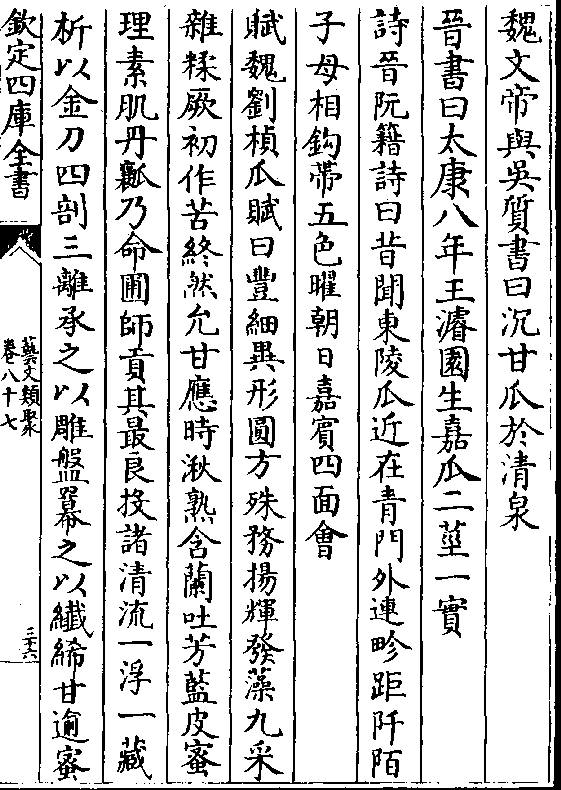 魏文帝與吳質書曰沉甘瓜於清泉
晉書曰太康八年王濬園生嘉瓜二莖一實
詩晉阮籍詩曰昔聞東陵瓜近在青門外連畛距阡陌
子母相鈎帶五色曜朝日嘉賓四面會
賦魏劉楨瓜賦曰豐細異形圓方殊務揚輝發藻九采
雜糅厥初作苦終然允甘應時湫熟含蘭吐芳藍皮蜜
理素肌丹瓤乃命圃師貢其最良投諸清流一浮一藏
析以金刀四剖三離承之以雕盤羃之以纖絺甘逾蜜
欽定四庫全書
藝文類聚
卷八十七
三十六